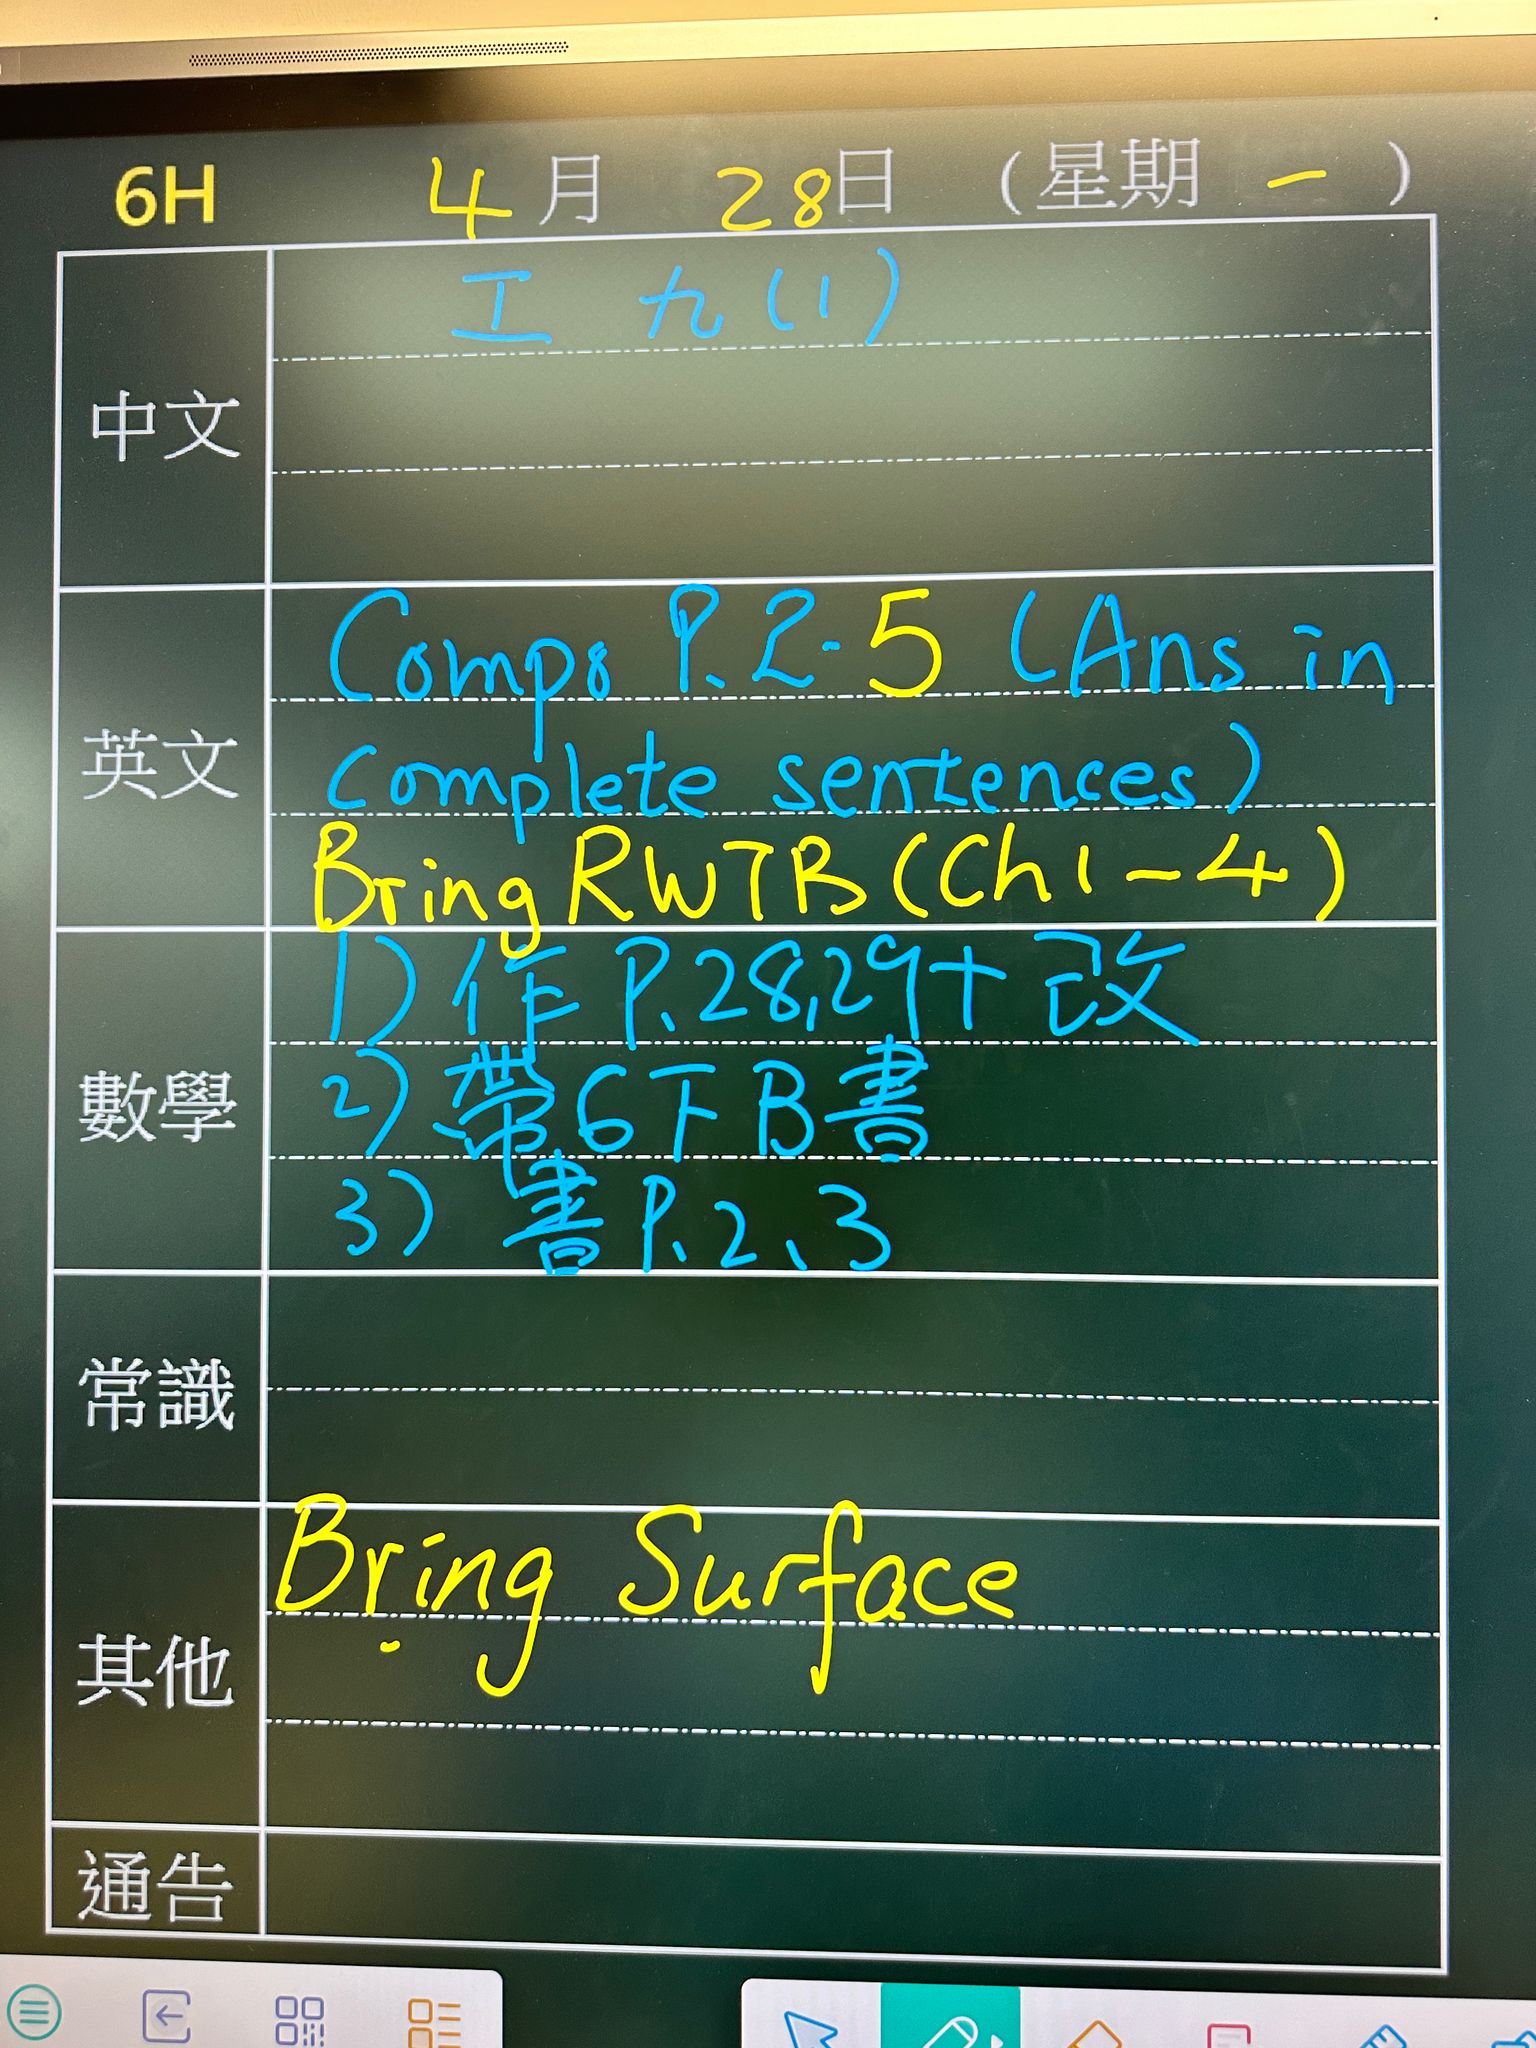 6H 4月 28日 (星期一)
中文
工 九(1)
英文
Compo P.2-5 (Ans in
complete sentences)
Bring RWTB (Ch1-4)
數學
1) 作 P.28,29+改
2) 帶6下B書
3) 書P.2、3
常識
其他
Bring Surface
通告